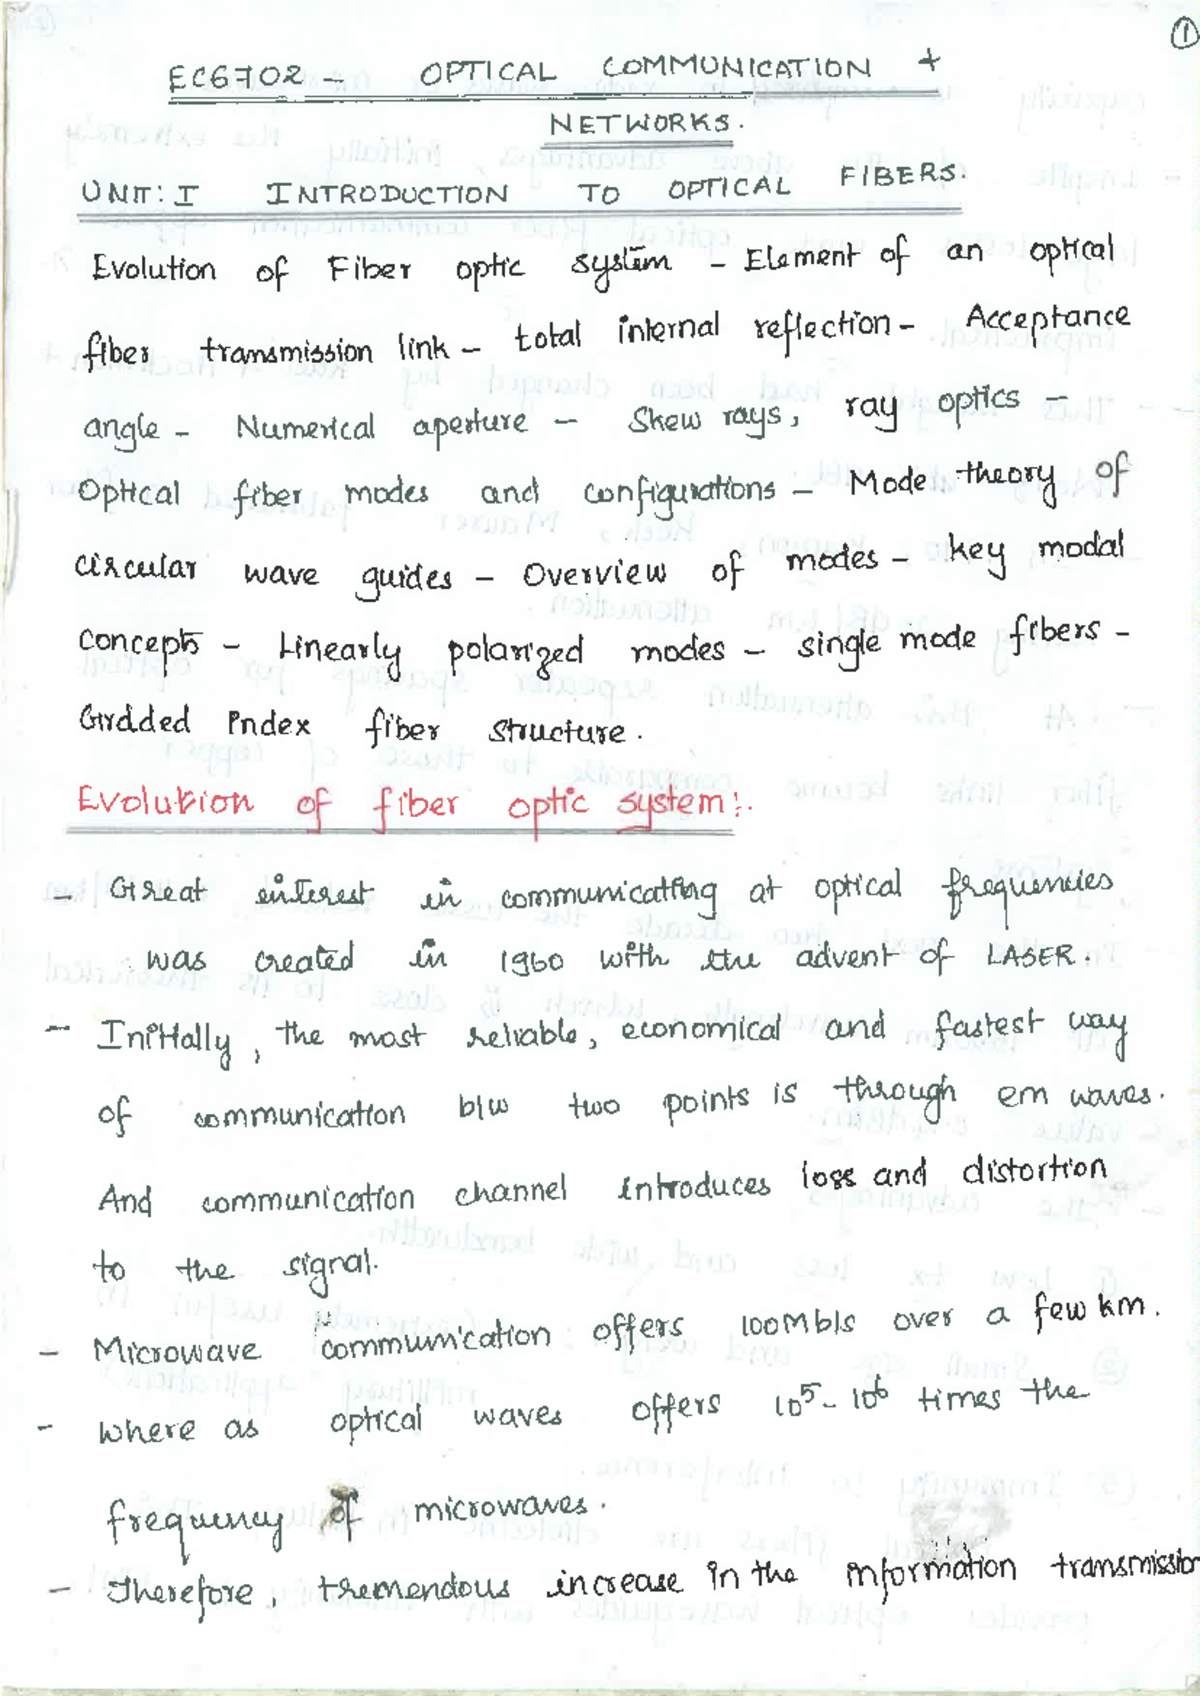 1
EC6702 - OPTICAL COMMUNICATION +
NETWORKS.
UNIT: I INTRODUCTION TO OPTICAL FIBERS.
Evolution of Fiber optic system - Element of an optical
fiber transmission link - total internal reflection - Acceptance
angle - Numerical aperture - Skew rays, ray optics -
Optical fiber modes and configurations - Mode theory of
circular wave guides - Overview of modes - key modal
concepts - Linearly polarized modes - single mode fibers -
Graded Index fiber structure.
Evolution of fiber optic system:.
- Great interest in communicating at optical frequencies
was created in 1960 with the advent of LASER.
- Initially, the most reliable, economical and fastest way
of communication b/w two points is through em waves.
And communication channel introduces loss and distortion
to the signal.
- Microwave communication offers 100Mb/s over a few km.
- where as optical waves offers 10⁵- 10⁶ times the
frequency of microwaves.
- Therefore, tremendous increase in the information transmission